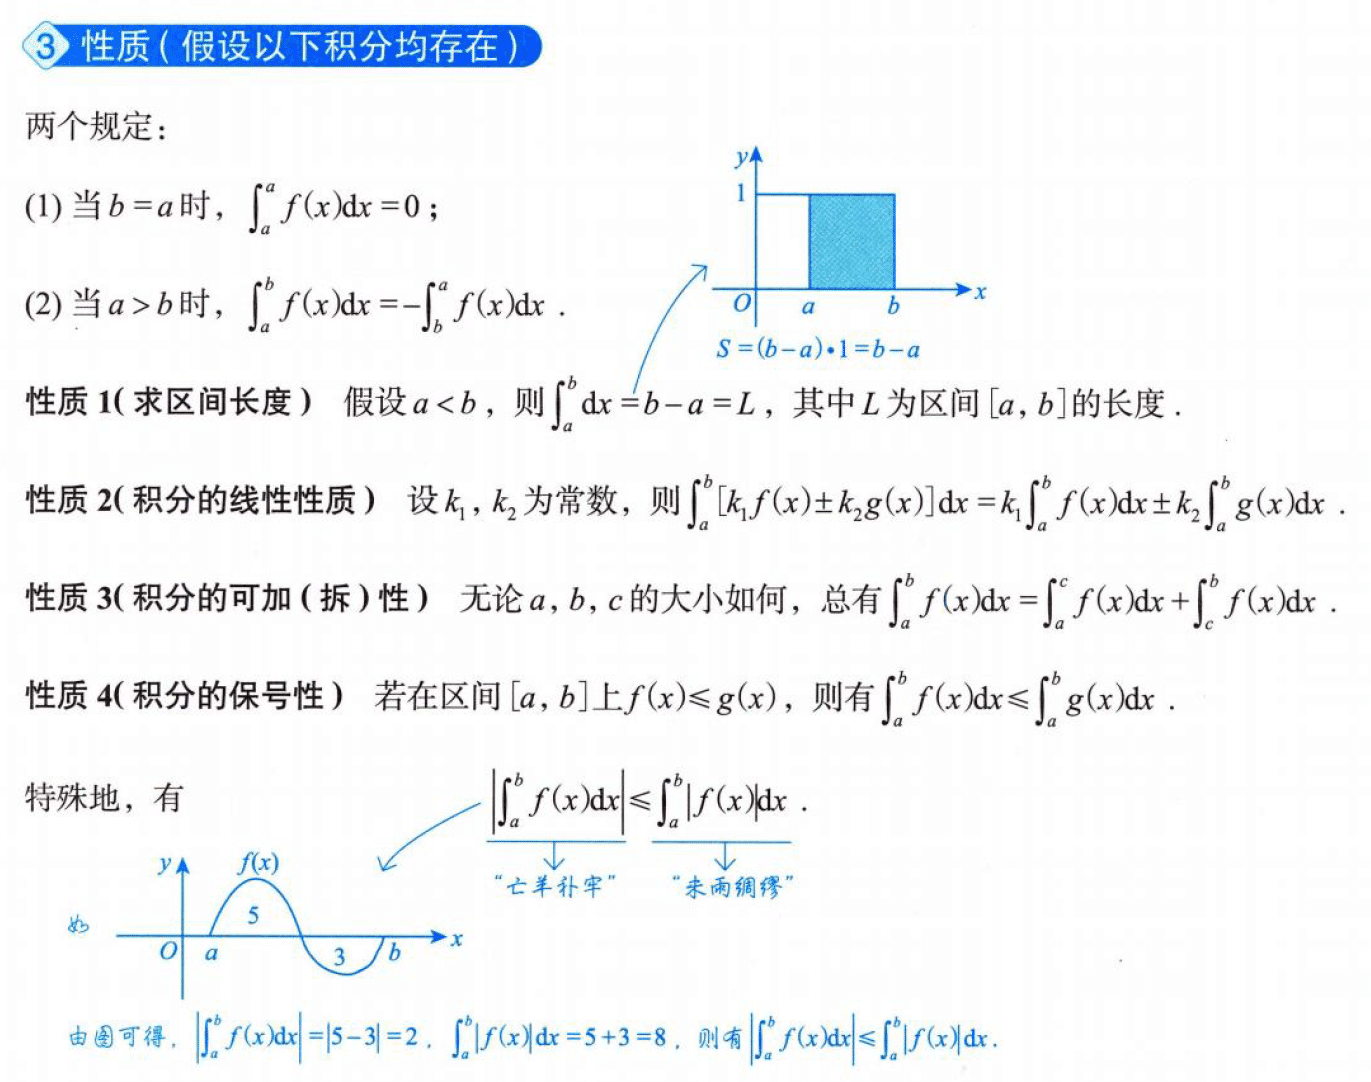 3 性质（假设以下积分均存在）
两个规定：
(1) 当 b = a 时，∫_a^a f(x)dx = 0；
(2) 当 a > b 时，∫_a^b f(x)dx = -∫_b^a f(x)dx .
y
1
O a b x
S = (b-a)•1 = b-a
性质 1( 求区间长度 ) 假设 a < b，则 ∫_a^b dx = b - a = L，其中 L 为区间 [a, b] 的长度 .
性质 2( 积分的线性性质 ) 设 k₁, k₂ 为常数，则 ∫_a^b [k₁f(x) ± k₂g(x)]dx = k₁∫_a^b f(x)dx ± k₂∫_a^b g(x)dx .
性质 3( 积分的可加 ( 拆 ) 性 ) 无论 a, b, c 的大小如何，总有 ∫_a^b f(x)dx = ∫_a^c f(x)dx + ∫_c^b f(x)dx .
性质 4( 积分的保号性 ) 若在区间 [a, b] 上 f(x) ≤ g(x)，则有 ∫_a^b f(x)dx ≤ ∫_a^b g(x)dx .
特殊地，有 |∫_a^b f(x)dx| ≤ ∫_a^b |f(x)|dx .
“亡羊补牢” “未雨绸缪”
y f(x)
5
如
O a 3 b x
由图可得，|∫_a^b f(x)dx| = |5-3| = 2，∫_a^b |f(x)|dx = 5+3 = 8，则有 |∫_a^b f(x)dx| ≤ ∫_a^b |f(x)|dx.